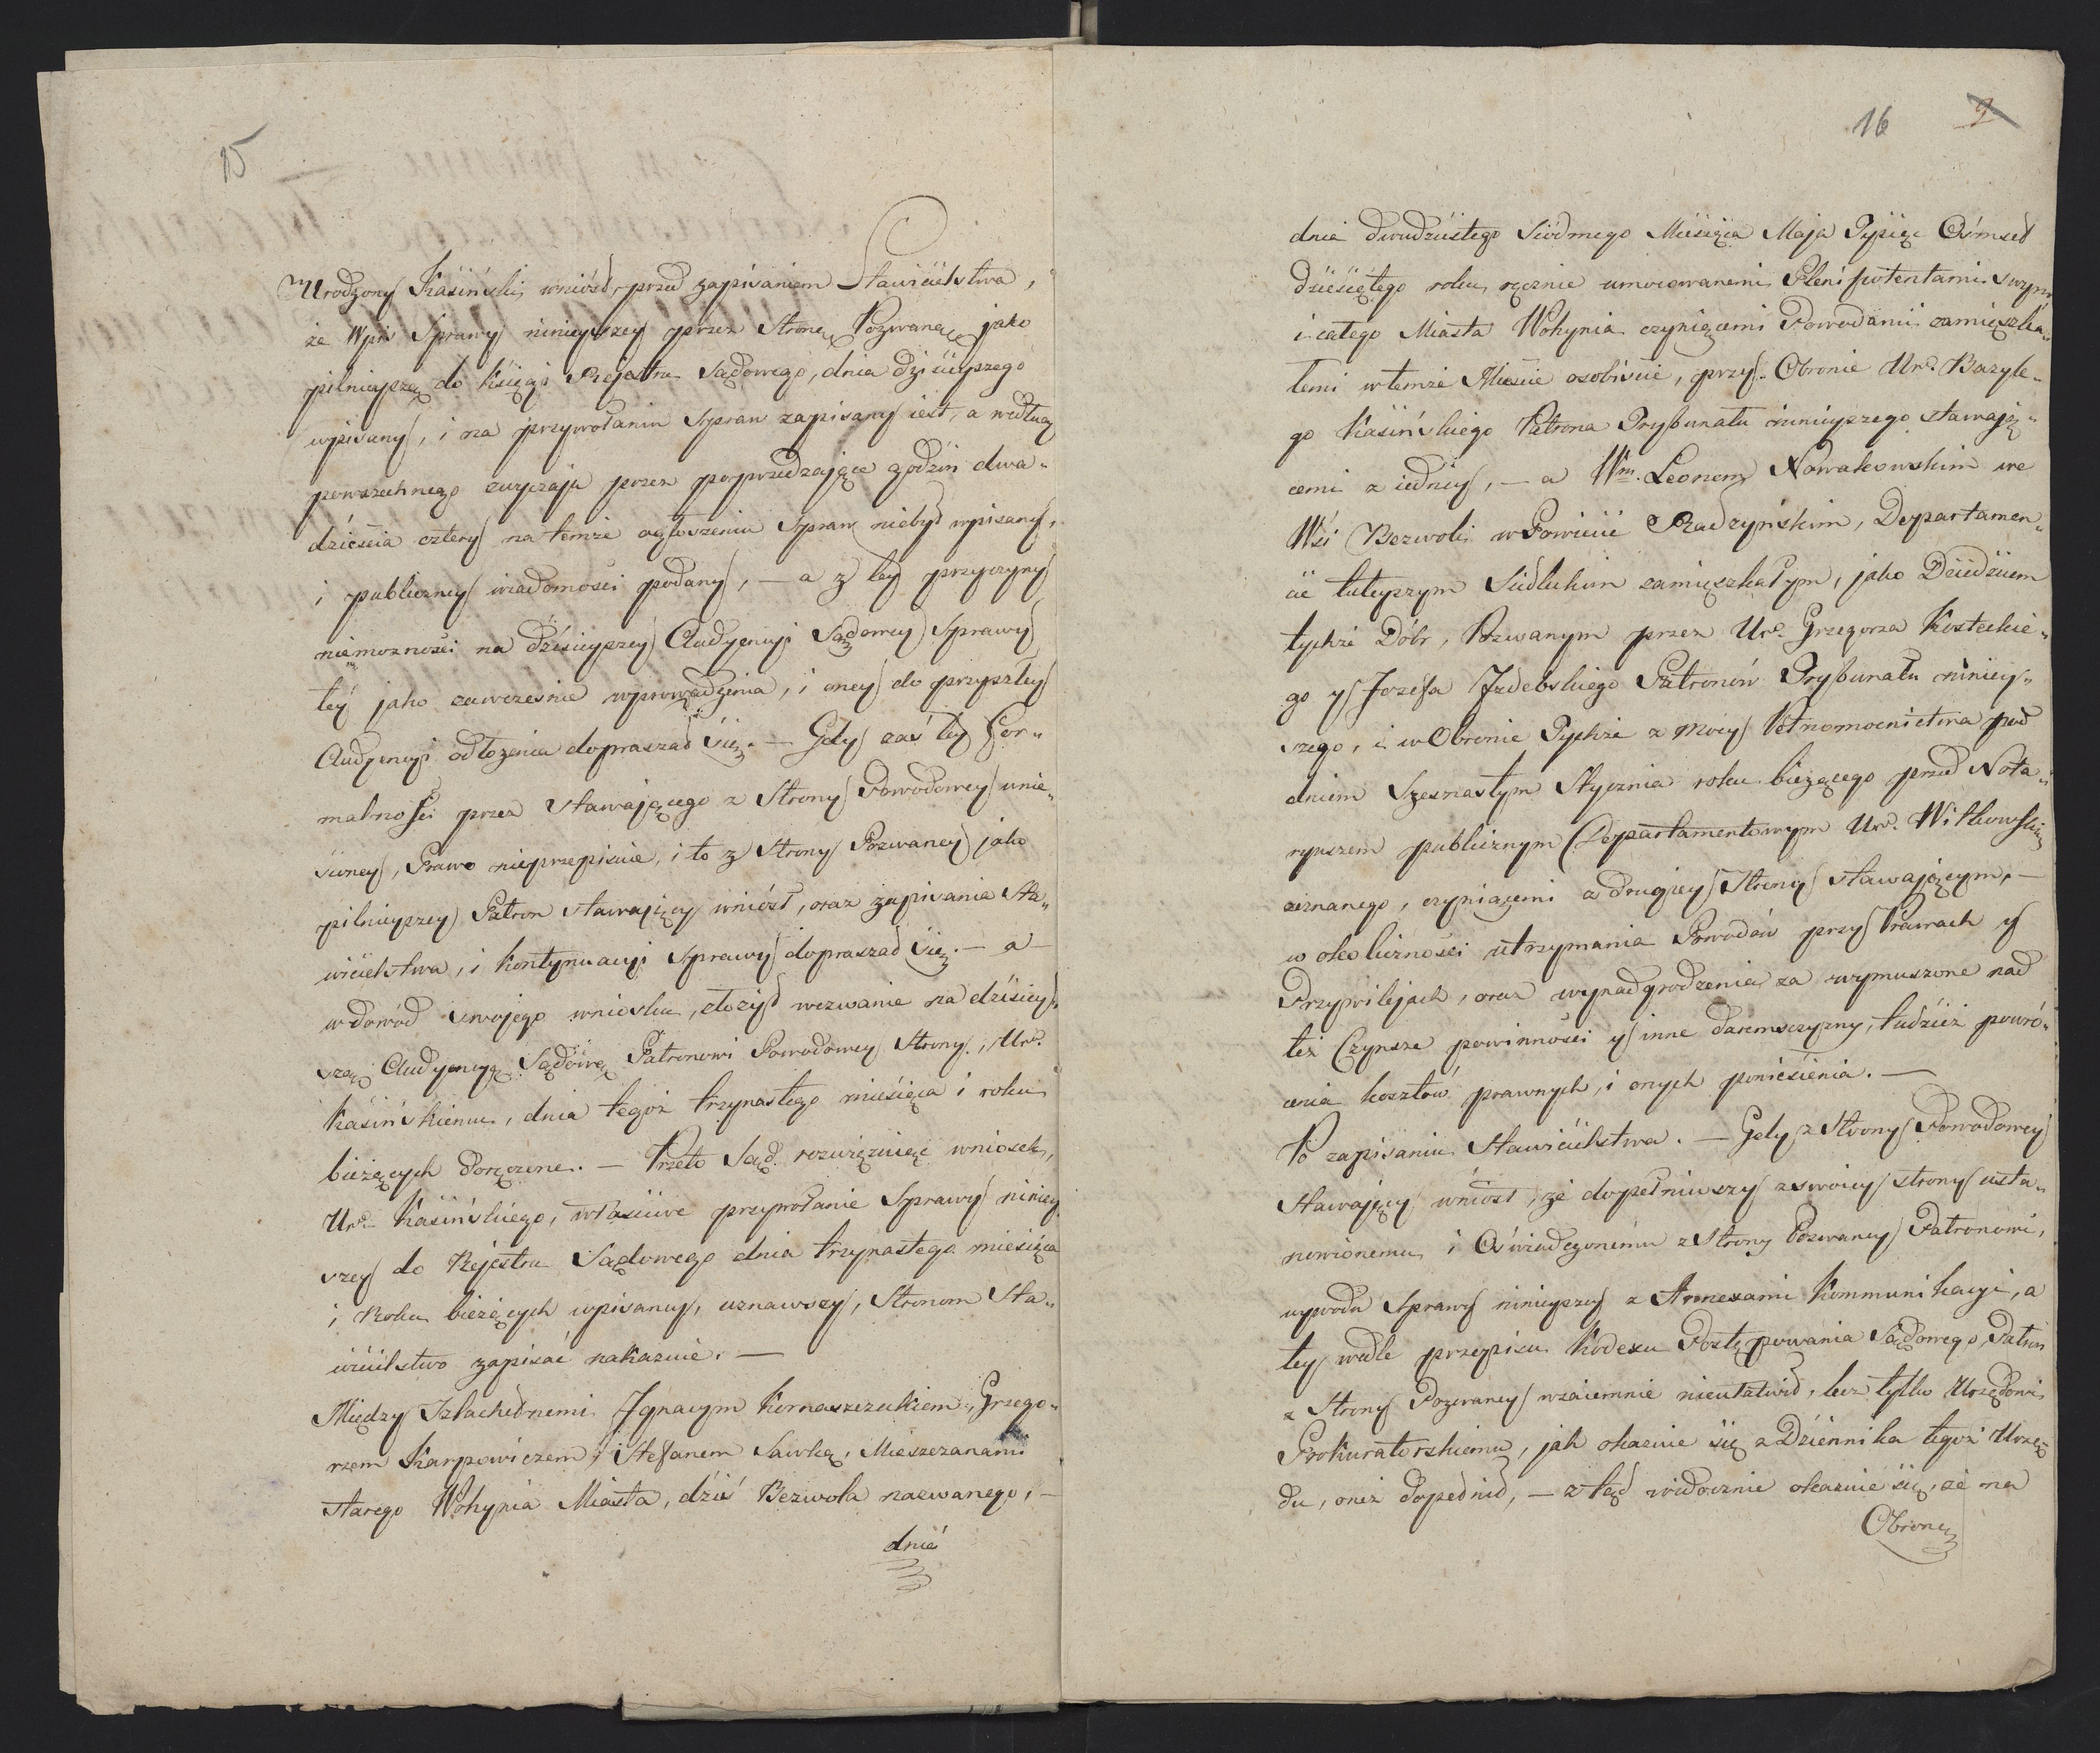 15
Urodzony Kasiński, wniósł, przed zapisaniem Stawicielstwa,
że Wpis Sprawy ninieyszey przez Stronę Pozwaną jako
pilnieyszą do księgi Rejestru Sądowego, dnia dzisieyszego
wpisany, i na przywołaniu Spraw zapisany iest, a według
powszechnego zwyczaju przez poprzedzające godzin dwa„
dzieścia cztery na temże ogłoszeniu Spraw niebył wpisany,
i publiczney wiadomości podany, — a z tey przyczyny
niemożności na dzisieyszey Audyencyi Sądowey Sprawy
tey jako zawcześnie wprowadzenia, i oney do przyszłey
Audyencyi odłożenia dopraszał się. — Gdy zaś tey For„
malności przez Stawaiącego z Strony Powodowey wnie„
sioney, Prawo nieprzepisuie, i to z Strony Pozwaney jako
pilnieyszey Patron stawaiący wniósł, oraz zapisania Sta„
wicielstwa, i kontynuacyi Sprawy dopraszał się. — a
w dowód swojego wniosku, złożył wezwanie na dzisiey„
szą Audyencyą Sądową Patronowi Powodowey Strony, Ur.
Kasińskiemu, dnia tegoż trzynastego miesiąca i roku
bieżących doręczone. — Przeto Sąd rozwiązuiąc wniosek,
Ur. Kasińskiego, właściwe przywołanie Sprawy niniey„
szey do Rejestru Sądowego dnia trzynastego miesiąca
i Roku bieżących wpisaney, uznawszy, Stronom Sta„
wicielstwo zapisać nakazuie. —
Między Szlachetnemi Ignacym Kornaszczukiem, Grzego„
rzem Karpowiczem, i Stefanem Sawką, Mieszczanami
starego Wohynia Miasta, dziś Bezwola nazwanego, —
dnia
16 9
dnia dwudziestego Siódmego Miesiąca Maja Tysiąc Ośmset
dziesiątego roku, ręcznie umocowanemi Plenipotentami swym
i całego Miasta Wohynia czyniącemi Powodami zamieszka„
łemi w temże Mieście osobiście, przy Obronie Ur. Bazyle„
go Kasińskiego Patrona Trybunału ninieyszego stawają„
cemi z iedney, — a Wm. Leonem Nowakowskim we
Wsi Bezwoli w Powiecie Radzyńskim, Departamen„
cie tuteyszym Siedleckim zamieszkałym, jako Dziedzicem
tychże Dóbr, Pozwanym przez Ur. Grzegorza Kosteckie„
go y Jozefa Izdebskiego Patronów Trybunału niniey„
szego, i w Obronie Tychże z Mocy Pełnomocnictwa pod
dniem Szesnastym Stycznia roku bieżącego przed Nota„
ryuszem publicznym Departamentowym Ur. Witkowskim
zeznanego, czyniącemi z drugiey Strony stawającym, —
w okoliczności utrzymania Powodów przy Prawach y
Przywilejach, oraz wynadgrodzenia za wymuszone nad
też Czynsze powinności y inne daremszczyzny, tudzież powró„
cenia kosztów prawnych, i onych poniesienia. —
Po zapisaniu Stawicielstwa. — Gdy z Strony Powodowey
Stawający wniósł, że dopełniwszy z swoiey strony usta„
nowionemu i Oświadczonemu z Strony Pozwaney Patronowi,
wywodu Sprawy ninieyszey z Annexami Kommunikacyi, a
tey wedle przepisu Kodexu Postępowania Sądowego, Patron
z Strony Pozwaney wzaiemnie nieułatwił, lecz tylko Urzędowi
Prokuratorskiemu, jak okazuie się z Dziennika tegoż Urzę
du, oneż dopełnił, — ztąd widocznie okazuie się, że na
Obronę